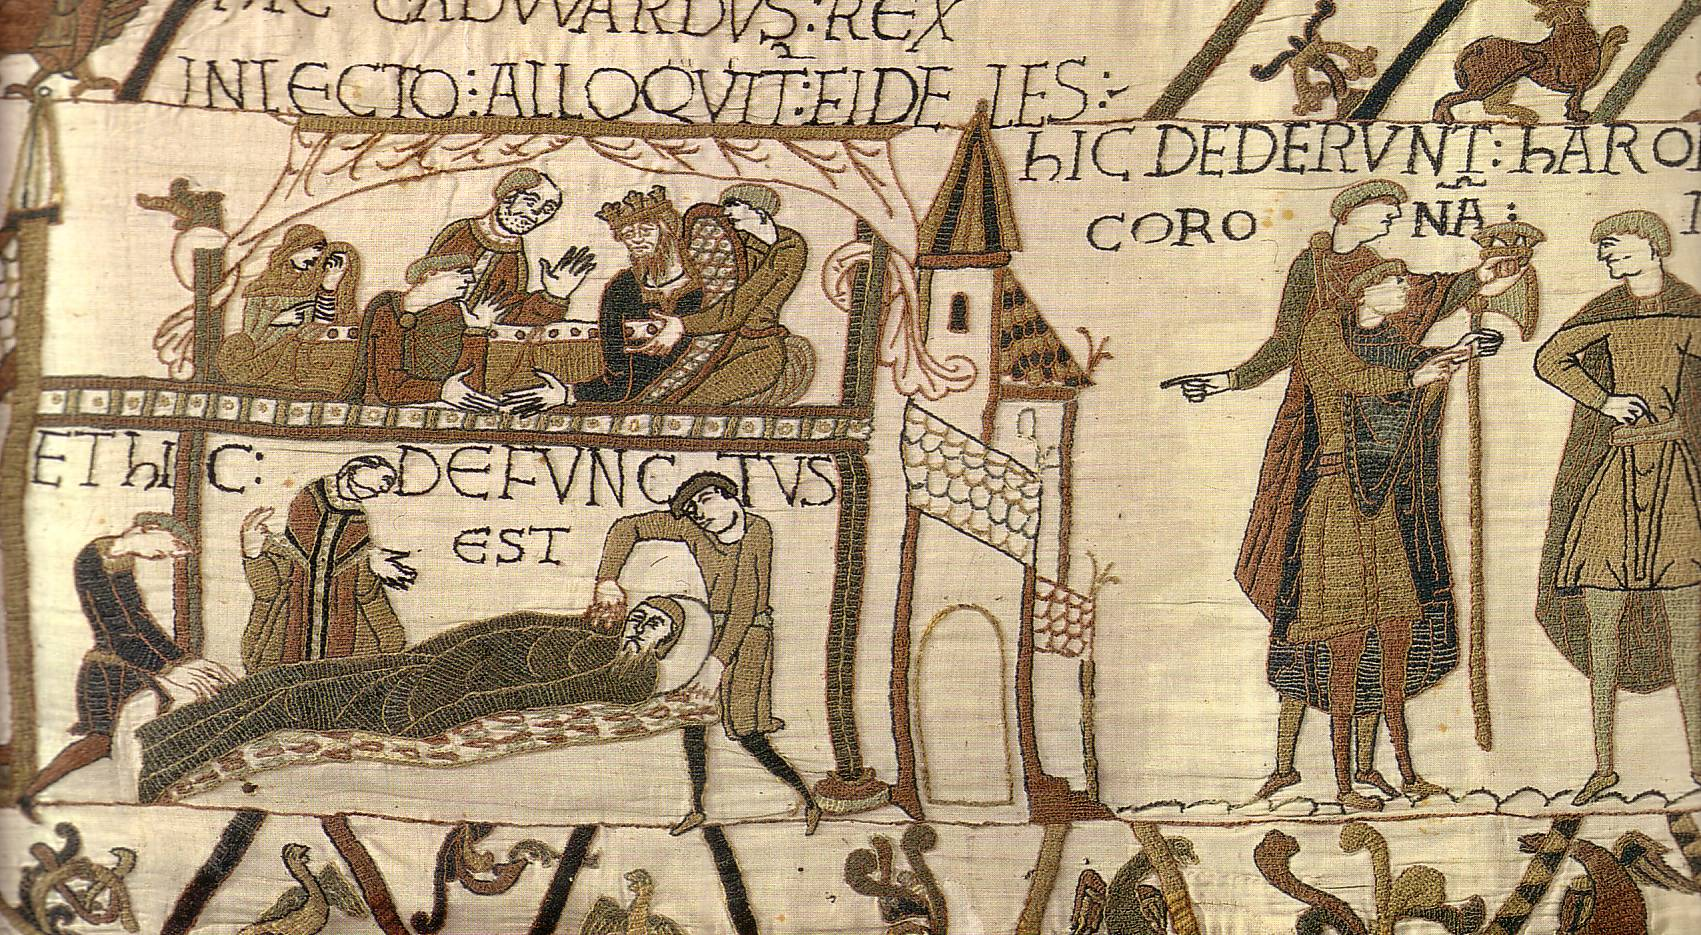 hIC EADVVARDVS: REX
IN LECTO: ALLOQVIT: FIDELES:
hIC DEDERVNT: hARO
CORONA:
ET hIC: DEFVNCTVS
EST